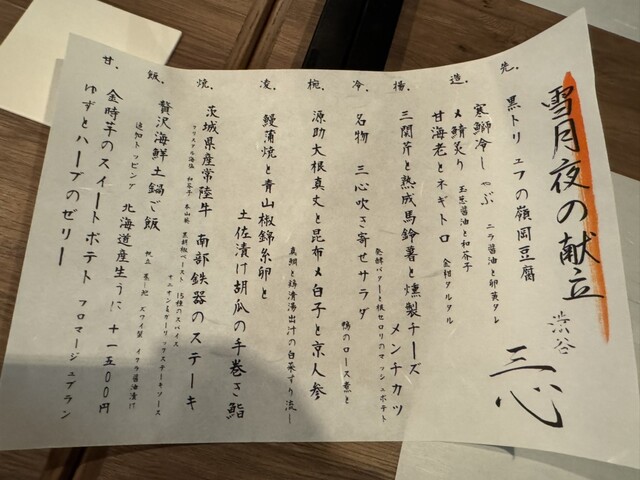 雪月夜の献立
渋谷
三心
先.
黒トリュフの嶺岡豆腐
造.
寒鰤冷しゃぶ ニラ醤油と卵黄タレ
〆鯖炙り 玉葱醤油と和芥子
甘海老とネギトロ 金柑タルタル
揚.
三関芹と熟成馬鈴薯と燻製チーズメンチカツ
発酵バターと根セロリのマッシュポテト
冷.
名物 三心吹き寄せサラダ 鴨のロース煮と
椀.
源助大根真丈と昆布〆白子と京人参
真鯛と鶏清湯出汁の白菜すり流し
凌.
鰻蒲焼と青山椒錦糸卵と
土佐漬け胡瓜の手巻き鮨
焼.
茨城県産常陸牛 南部鉄器のステーキ
クリスタル海塩 和芥子 本山葵 黒胡椒ペースト 15種のスパイス
オニオン&ガーリックステーキソース
飯.
贅沢海鮮土鍋ご飯 帆立 蒸し鮑 ズワイ蟹 イクラ醤油漬け
追加トッピング 北海道産生うに 十一五〇〇円
甘.
金時芋のスイートポテト フロマージュブラン
ゆずとハーブのゼリー